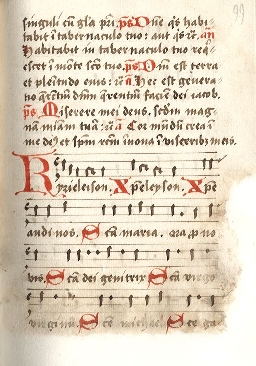 99
singuli cū gła pr̄i. ps Dne q̄s habi-
tabit ī tabernaculo tuo: aut q̄s r̄. an̄
Habitabit in tabernaculo tuo req̄-
escet ī mōte scō tuo. ps Dn̄i est terra
et pleītudo eius: r̄. a Hec est genera-
tio q̄rētiū dn̄m q̄rentiū faciē dei iacob.
ps Miserere mei deus. scdm mag-
nā miām tuā: r̄. a Cor mūdū crea ī
me de9 et spm rc̄m inoua ī viscerib3 meis.
Kyrieleison. Xpeleyson. Xpe
audi nos. Scā maria. ora p no
vis. Scā dei genitrix Scā virgo
virginū. Scē michael. Scē ga